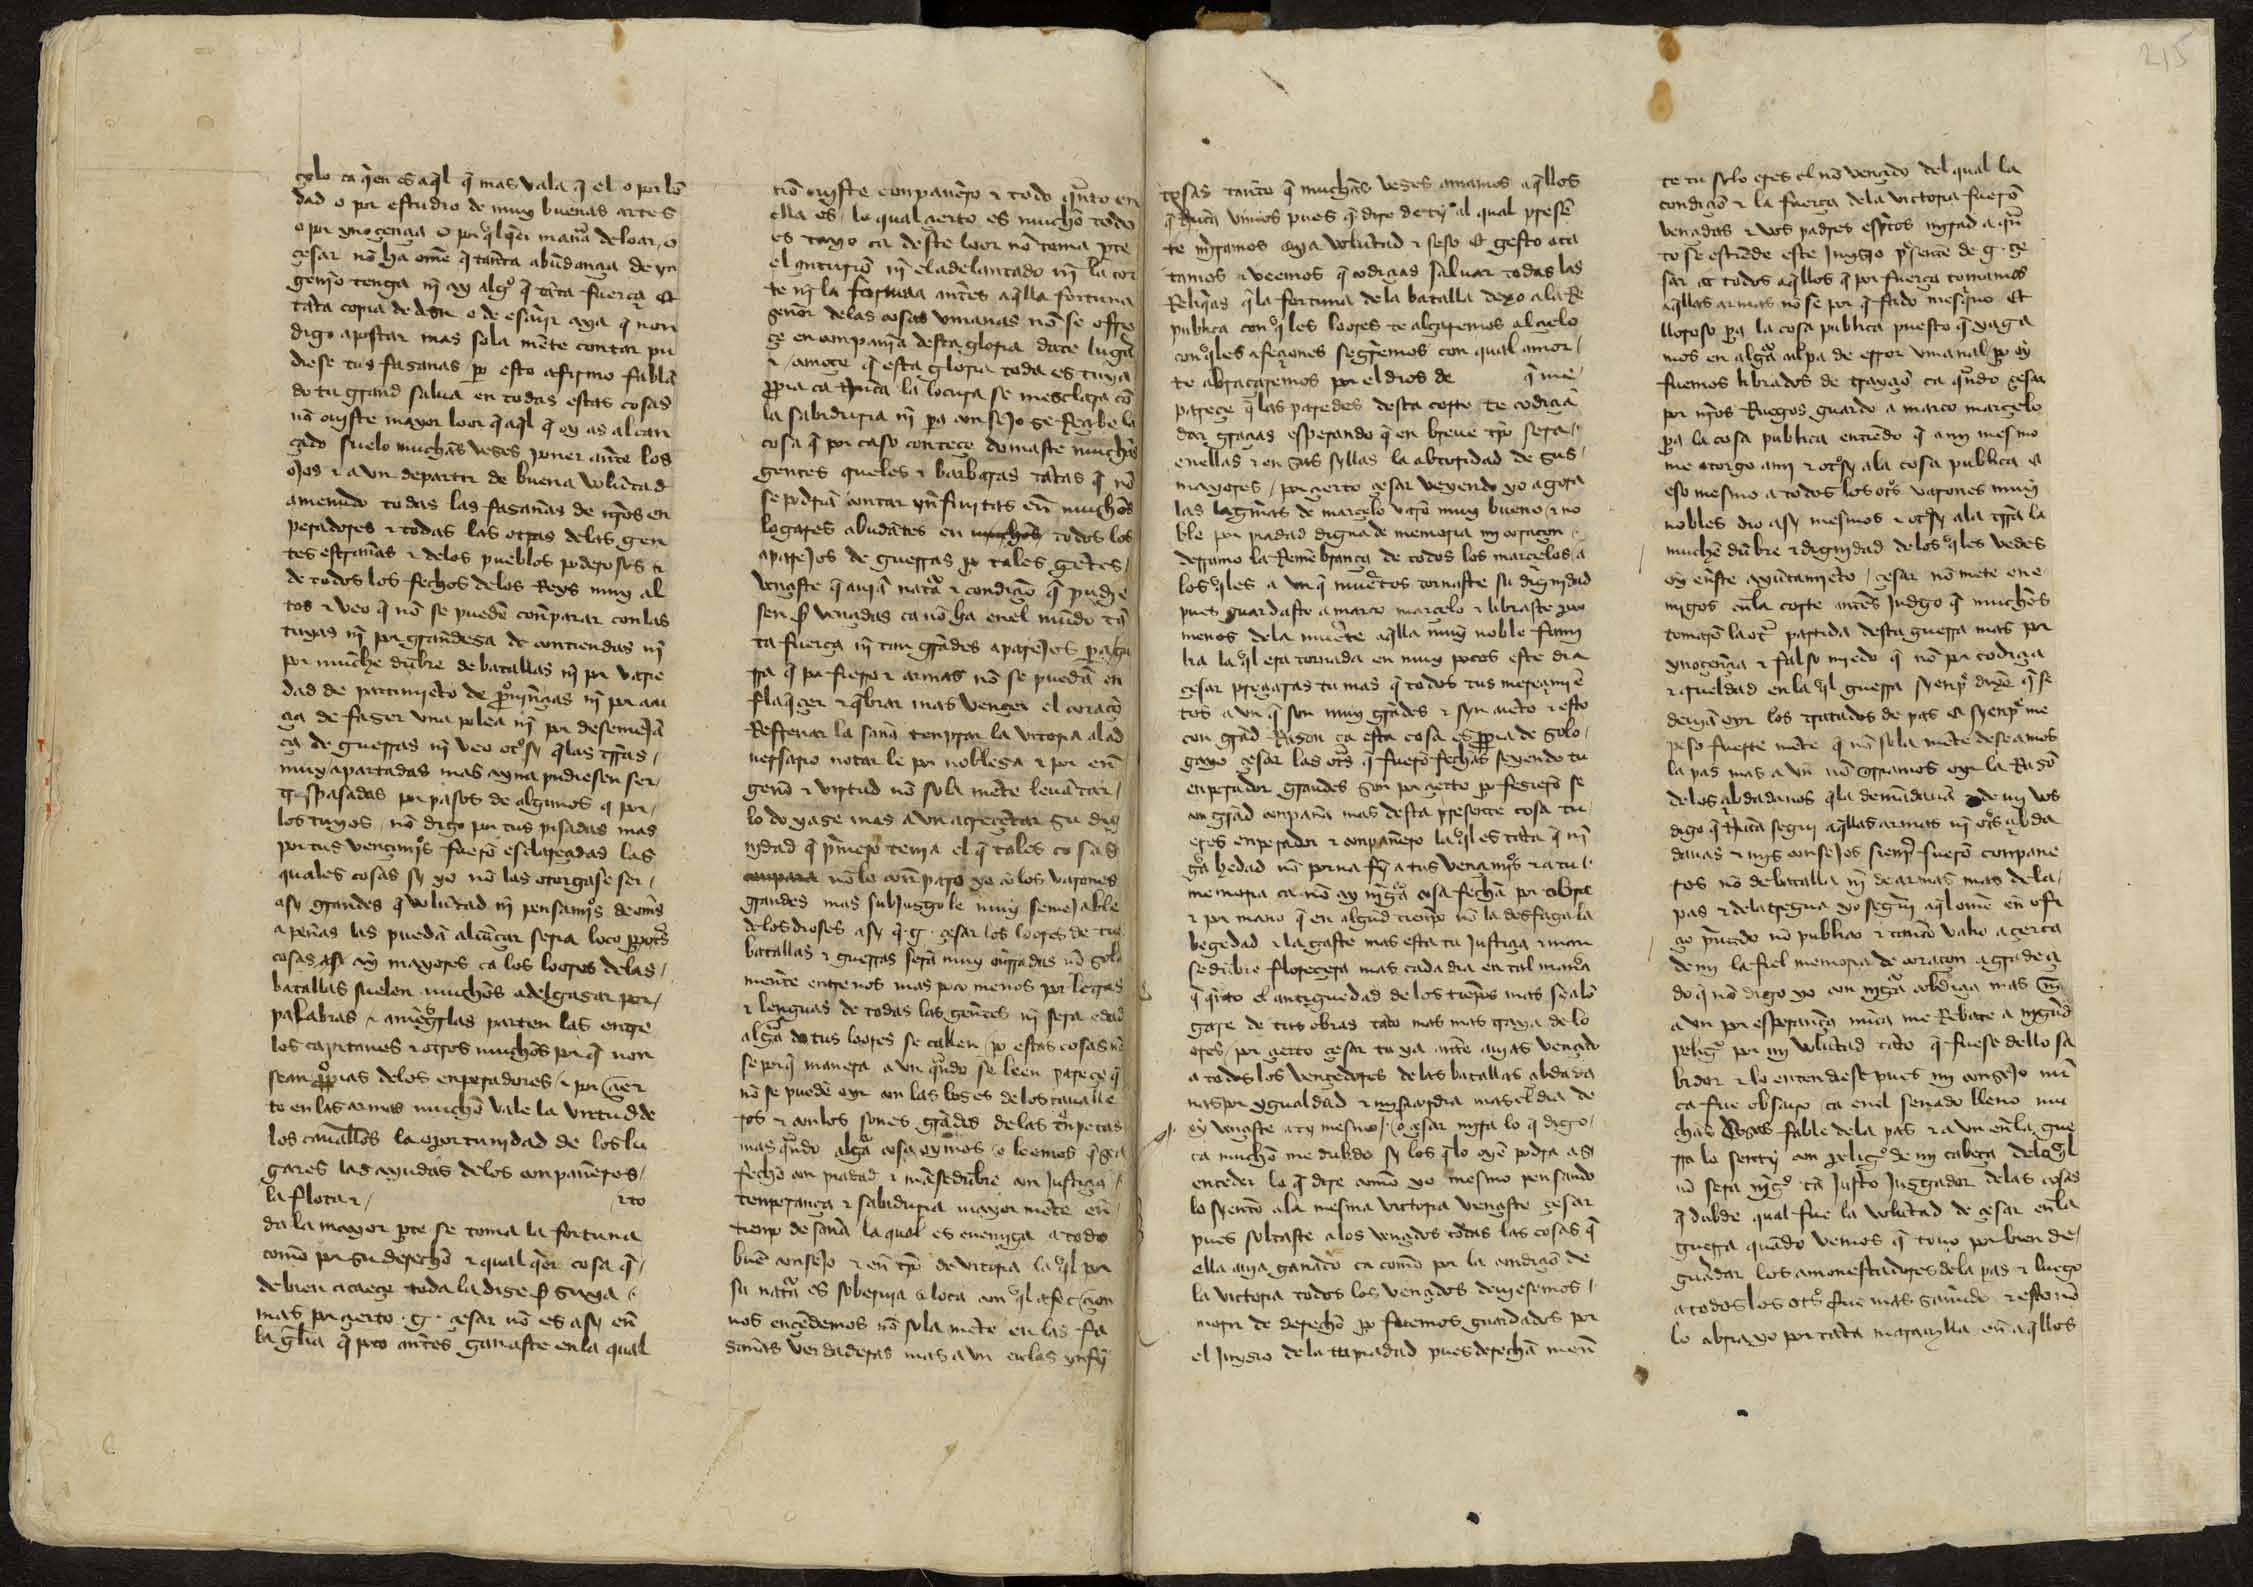 215
çelo ca q̃en es aq̃l q̃ mas vala q̃ el o por bõ
dad o por estudio de muy buenas artes
o por ynoçençia o por q̃lq̃er manã de loar o
çesar nõ ha ome q̃ tanta abundançia de yn
genio tenga nĩ ay algo q̃ tãta fuerça et
tãta copia de desir o de escriuir aya q̃ non
digo apostar mas sola mẽte contar pu
diese tus fasañas p̃o esto afirmo fablã
do tu grand salua en todas estas cosas
nõ ouiste mayor loor q̃ aq̃l q̃ oy as alcan
çado suelo muchas veses poner ante los
ojos & avn departir de buena voluntad
amenudo todas las fasañas de nr̃os en
peradores & todas las otras delas gen
tes estrañas & delos pueblos poderosos &
de todos los fechos delos Reys muy al
tos & veo q̃ nõ se pueden conparar con las
tuyas nĩ por grandesa de contiendas nĩ
por muche dũbre de batallas nĩ por varie
dad de partimiẽto de prouinçias nĩ por acu
çia de faser vna pelea nĩ por desemejã
ça de guerras nĩ veo otrosy q̃ las tr̃ras
muy apartadas mas ayna pudiesen ser
trespasadas por pasos de algunos q̃ por
los tuyos nõ digo por tus pisadas mas
por tus vençimiẽtos fuerõ esclareçidas las
quales cosas sy yo nõ las otorgase ser
asy grandes q̃ voluntad nĩ pensamiẽtos de om̃s
a penas las puedã alcançar seria loco
cosas ay mayores ca los loores delas
batallas suelen muchos adelgasar por
palabras & amẽguarlas parten las entre
los capitanes & otros muchos por q̃ non
sean propias delos enperadores & por çier
to en las armas mucho vale la virtud de
los caualleros la oportunidad de los lu
gares las ayudas delos conpañeros
la flota & & to
da la mayor parte se toma la fortuna
como por su derecho & qual q̃er cosa q̃
de bien acaeçe toda la dise ser suya
mas por çierto g çesar nõ es asy en
la gl̃ia q̃ poco antes ganaste en la qual
ouiste conpañero & todo q̃nto en
ella es lo qual çierto es mucho todo
es tuyo ca deste loor nõ toma parte
el çenturiõ nĩ el adelantado nĩ la cor
te nĩ la fortuna antes aq̃lla fortuna
señor delas cosas vmanas nõ se ofre
çe en conpañia desta gloria date lugar
& conoçe q̃ esta gloria toda es tuya
propia ca nunca la locura se mesclara cõ
la sabiduria nĩ para consejo se Reçibe la
cosa q̃ por caso conteçe domaste muchas
gentes crueles & barbaras tãtas q̃ nõ
se podrian contar ynfinitas en muchos
logares abũdãtes en muchos todos los
aparejos de guerras p̃o tales gẽtes
vençiste q̃ auiã natura & condiçiõ q̃ pudie
sen ser vençidas ca nõ ha en el mundo tã
ta fuerça nĩ tan grãdes aparejos para gue
rra q̃ por fierro & armas nõ se puedã en
flaq̃çer & q̃brar mas vençer el coraçõ
Refrenar la saña tenprar la victoria al ad
uersario notar le por noblesa & por en
genio & virtud nõ sola mẽte leuãtar
lo do yase mas avn acreçẽtar su dig
nidad q̃ primero tenia el q̃ tales cosas
conpara nõ lo conparo yo cõ los varones
grandes mas sub jusgo le muy semejable
de los dioses asy q̃ g çesar los loores de tus
batallas & guerras serã muy onrradas nõ sola
mente entre nos mas poco menos por letras
& lenguas de todas las gentes nĩ sera edad
algũa do tus loores se callen p̃o estas cosas nõ
se por q̃ manera avn q̃ndo se leen pareçe q̃
nõ se pueden oyr con las boses de los caualle
ros & con los sones grãdes de las trõpetas
mas q̃ndo algũa cosa oymos o leemos q̃ sea
fecho con piadad & mãsedũbre con justiçia
tenperança & sabiduria mayor mẽte en
tienpo de saña la qual es enemiga a todo
buẽ consejo & en tp̃o de vitoria la q̃l por
su natura es soberuia & loca con q̃l afecçion
nos ençẽdemos nõ sola mẽte en las fa
sañas verdaderas mas avn en las ynfi
tosas tanto q̃ muchas veses amamos aq̃llos
q̃ nũca vimos pues q̃ dire de ty al qual presẽ
te miramos cuya voluntad & seso et gesto aca
tamos & veemos q̃ codiçias saluar todas las
Reliq̃as q̃ la fortuna dela batalla dexo ala Re
publica con q̃les loores te alçaremos al çielo
con q̃les afeçiones segiremos con qual amor
te abraçaremos por el dios de q̃ me
pareçe q̃ las paredes desta corte te codiçiã
dar graçias esperando q̃ en breue tp̃o sera
en ellas & en sus syllas la abtoridad de sus
mayores por çierto çesar veyendo yo agora
las lagrimas de marçelo varõ muy bueno & no
ble por piadad digna de memoria mi coraçon
derramo la Remẽbrança de todos los marçelos a
los q̃les avn q̃ muertos tornaste su dignidad
pues guardaste a marco marçelo & libraste poco
menos dela muerte aq̃lla muy noble fami
lia la q̃l era tornada en muy pocos este dia
çesar preçiaras tu mas q̃ todos tus mereçimiẽ
tos avn q̃ son muy grãdes & syn cuẽto & esto
con grãd Rason ca esta cosa es propia de solo
gayo çesar las otras q̃ fuerõ fechas seyendo tu
enperador grandes son por çierto p̃o fesierõ se
con grãd conpaña mas desta presente cosa tu
eres enperador & conpañero la q̃l es tãta q̃ nĩ
gũa hedad nõ porna fĩ a tus vençimiẽtos & a tu
memoria ca nõ ay nĩgũa cosa fecha por obra
& por mano q̃ en algũd tienpo nõ la desfaga la
begedad & la gaste mas esta tu justiçia & man
sedũbre floreçera mas cada dia en tal manera
q̃ q̃nto el antiguedad de los tienpos mas se alõ
gare de tus obras tãto mas mas traya de lo
ores por çierto çesar tu ya ante auias vençido
a todos los vençedores de las batallas çibdada
nas por ygualdad & misericordia mas el dia de
oy vençiste a ty mesmo o çesar mira lo q̃ digo
ca mucho me dubdo sy los q̃ lo oyẽ podrã asi
entender lo q̃ dise como yo mesmo pensando
lo syento ala mesma victoria vençiste çesar
pues soltaste a los vençidos todas las cosas q̃
ella auia ganado ca como por la condiçiõ de
la victoria todos los vençidos deuiesemos
morir de derecho p̃o fuemos guardados por
el juysio de la tu piadad pues derecha mẽ
te tu solo eres el nõ vençido del qual la
condiçiõ & la fuerça dela victoria fuerõ
vençidas & vos padres esc̃ptos mirad a q̃n
to se estiende este juysio presente de g çe
sar ca todos aq̃llos q̃ por fuerça tomamos
aq̃llas armas nõ se por q̃ fado mesq̃no et
lloroso para la cosa publica puesto q̃ yaga
mos en algũa culpa de error vmanal p̃o oy
fuemos librados de trayçiõ ca q̃ndo çesar
por nr̃os Ruegos guardo a marco marçelo
para la cosa publica entiendo q̃ a my mesmo
me otorgo a mi & otrosy ala cosa publica &
eso mesmo a todos los otros varones muy
nobles dio asy mesmos & otrosy ala tierra la
muche dũbre & dignidad de los q̃les vedes
oy en este ayũtamiẽto çesar nõ mete ene
migos en la corte antes judgo q̃ muchos
tomarõ la otra partida desta guerra mas por
ynoçençia & falso miedo q̃ nõ por codiçia
& crueldad en la q̃l guerra syenpre dixe q̃ se
deuiã oyr los tratados de pas & syenpre me
peso fuerte mẽte q̃ nõ sola mẽte deseamos
la pas mas avn nõ q̃riamos oyr la Rasõ
de los çibdadanos q̃ la demãdauã de mi vos
digo q̃ nũca segui aq̃llas armas nĩ otras çibda
danas & mis consejos sienpre fuerõ conpañe
ros nõ de batalla nĩ de armas mas de la
pas & de la tregua yo segui aq̃l ome en ofi
çio priuado nõ publico & tanto valio açerca
de mi la fiel memoria de coraçon agradeçi
do q̃ nõ digo yo con nĩgũa cobdiçia mas nĩ
avn por esperança nũca me Rebate a ningũd
peligro por mi voluntad tãto q̃ fuese dello sa
bidor & lo entendiese pues mi consejo nũ
ca fue obscuro ca en el senado lleno mu
chas veses fable dela pas & avn en la gue
rra lo senty con peligro de mi cabeça del q̃l
nõ sera nĩgo tã justo jusgador delas cosas
q̃ dubde qual fue la voluntad de çesar en la
guerra quãdo vemos q̃ touo por bien de
guardar los amonestadores dela pas & luego
a todos los otros fue mas sañudo & esto nõ
lo abria yo por tãta marauilla en aq̃llos